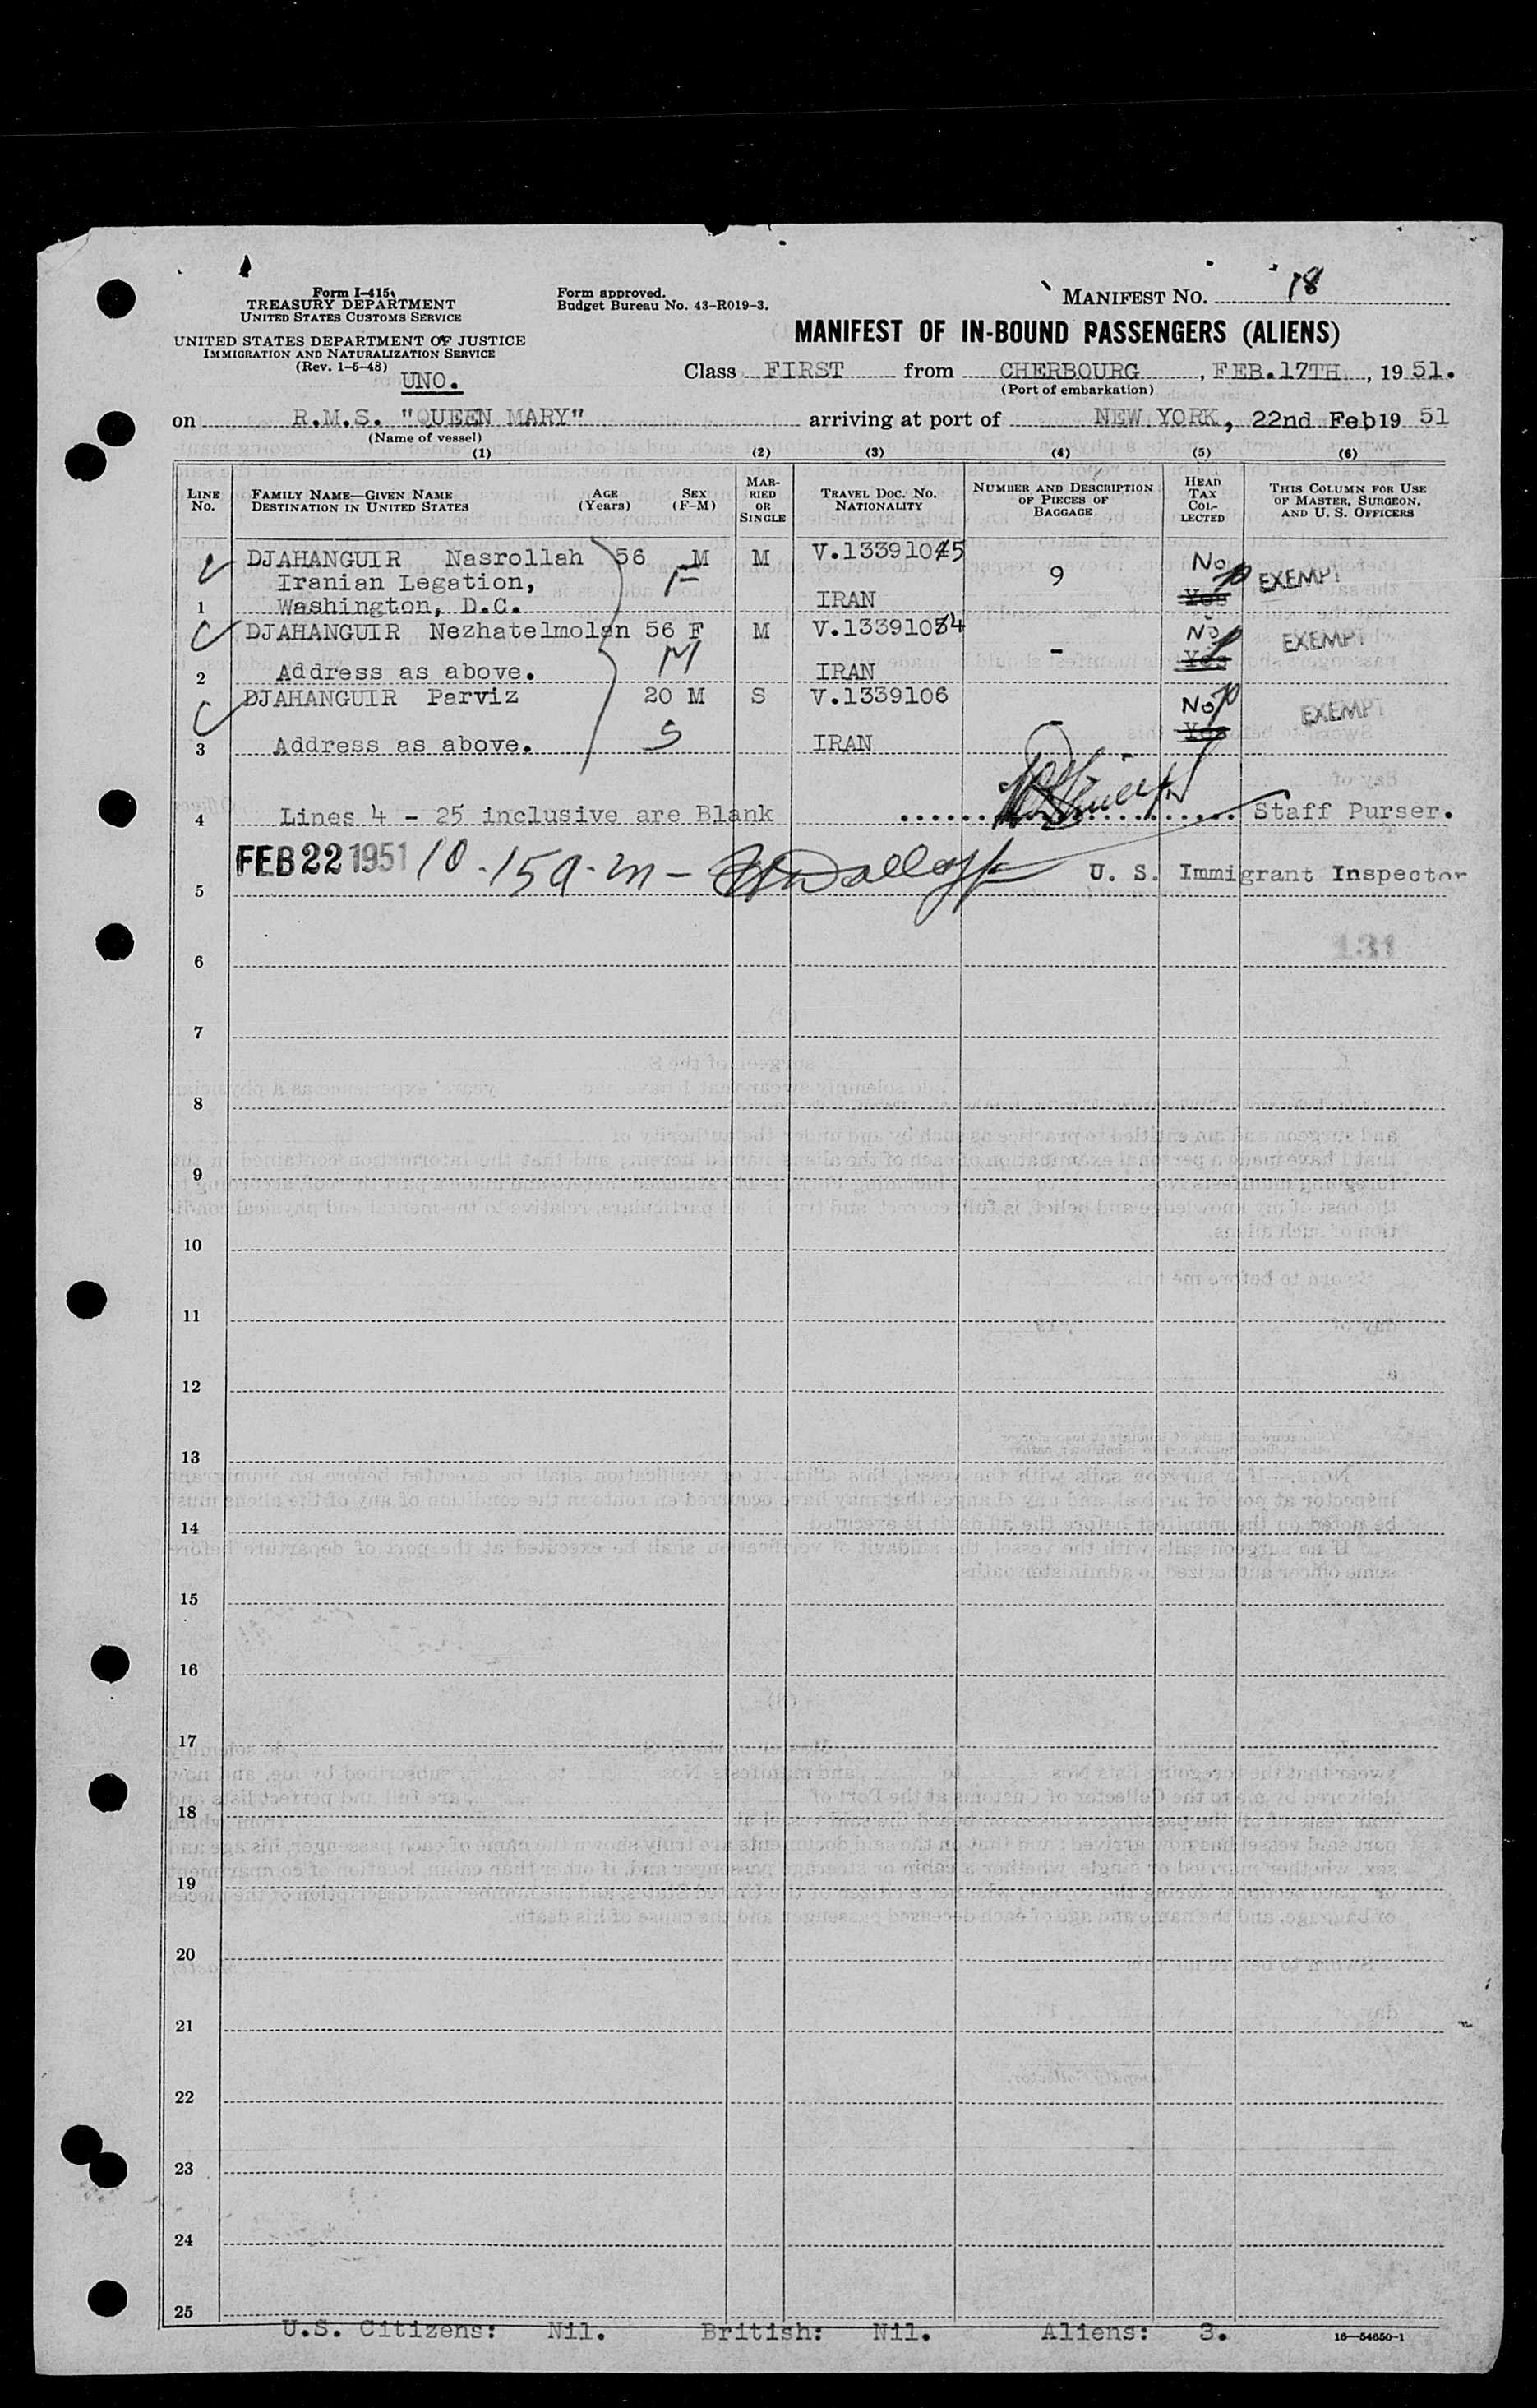 Form I-415
TREASURY DEPARTMENT
UNITED STATES CUSTOMS SERVICE
UNITED STATES DEPARTMENT OF JUSTICE
IMMIGRATION AND NATURALIZATION SERVICE
(Rev. 1-5-48)
UNO.
Form approved.
Budget Bureau No. 43-R019-3.
MANIFEST NO. 18
MANIFEST OF IN-BOUND PASSENGERS (ALIENS)
Class FIRST from CHERBOURG, FEB.17TH, 1951.
(Port of embarkation)
on R.M.S. "QUEEN MARY" arriving at port of NEW YORK, 22nd Feb 1951
(Name of vessel)
(1) (2) (3) (4) (5) (6)
LINE NO. FAMILY NAME—GIVEN NAME DESTINATION IN UNITED STATES AGE (Years) SEX (F-M) MARRIED OR SINGLE TRAVEL DOC. NO. NATIONALITY NUMBER AND DESCRIPTION OF PIECES OF BAGGAGE HEAD TAX COLLECTED THIS COLUMN FOR USE OF MASTER, SURGEON, AND U. S. OFFICERS
DJAHANGUIR Nasrollah 56 M M V.1339105 9 No EXEMPT
Iranian Legation, F
1 Washington, D.C. IRAN Yes
DJAHANGUIR Nezhatelmolan 56 F M V.1339104 - No EXEMPT
M
2 Address as above. IRAN Yes
DJAHANGUIR Parviz 20 M S V.1339106 - No EXEMPT
S
3 Address as above. IRAN Yes
4 Lines 4 - 25 inclusive are Blank Staff Purser.
5 FEB 22 1951 10.15 a.m - U. S. Immigrant Inspector
131
6
7
8
9
10
11
12
13
14
15
16
17
18
19
20
21
22
23
24
25
U.S. Citizens: Nil. British: Nil. Aliens: 3.
16—54650-1